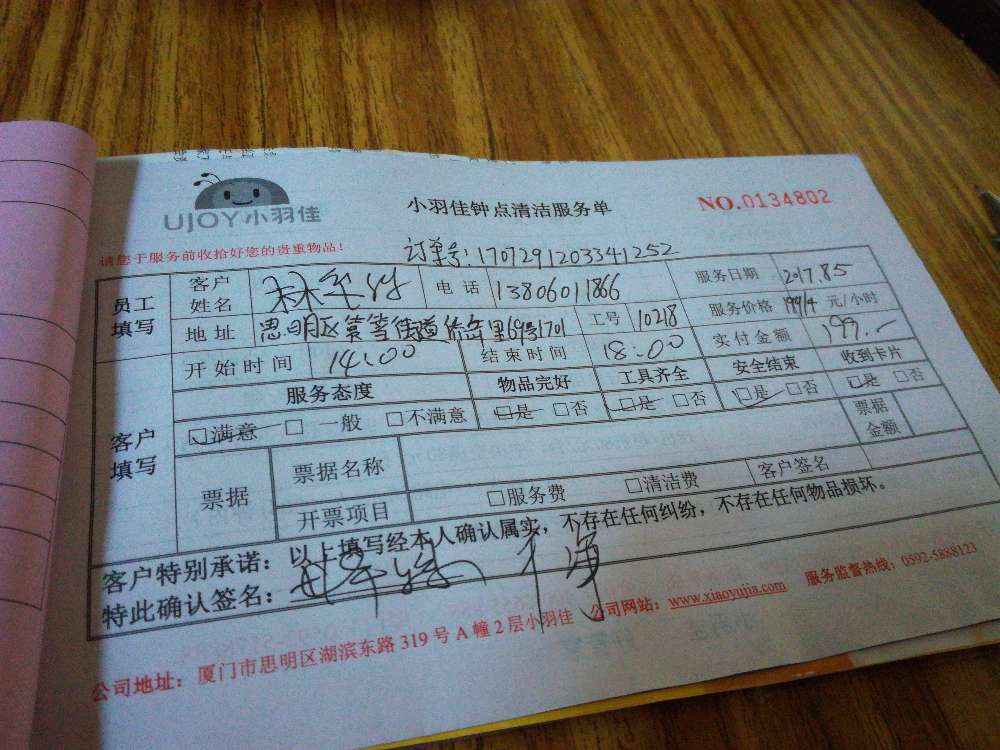 UJOY小羽佳
小羽佳钟点清洁服务单
NO.0134802
请您于服务前收拾好您的贵重物品!
订单号:1707291203341252
员工填写
客户姓名
电话 13806011866
服务日期 2017.8.5
地址 思明区筼筜街道 里69号1701
工号 10218
服务价格 199/4 元/小时
开始时间 14:00
结束时间 18:00
实付金额 199.-
客户填写
服务态度 物品完好 工具齐全 安全结束 收到卡片
☑满意 □一般 □不满意 ☑是 □否 ☑是 □否 ☑是 □否 ☑是 □否
票据 票据名称 票据金额
开票项目 □服务费 □清洁费 客户签名
客户特别承诺:以上填写经本人确认属实,不存在任何纠纷,不存在任何物品损坏。
特此确认签名: 干净
公司地址:厦门市思明区湖滨东路319号A幢2层小羽佳 公司网站:www.xiaoyujia.com 服务监督热线:0592-5888123